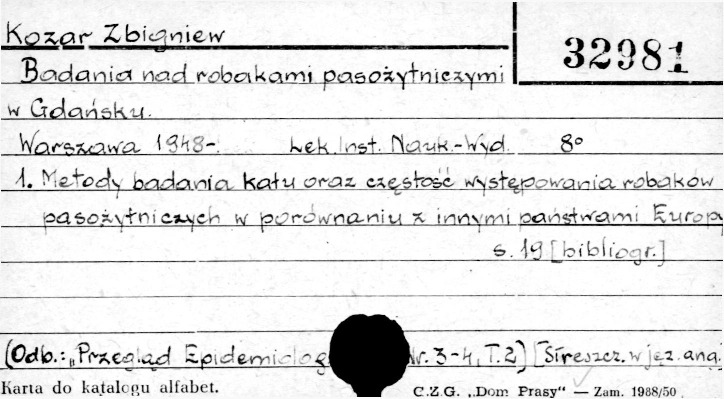 Kozar Zbigniew
32981
Badania nad robakami pasożytniczymi
w Gdańsku.
Warszawa 1948-. Lek. Inst. Nauk.-Wyd. 8°
1. Metody badania kału oraz częstość występowania robaków
pasożytniczych w porównaniu z innymi państwami Europy
s. 19 [bibliogr.]
(Odb.: „Przegląd Nr. 3-4, T. 2) [Streszcz. w jęz. ang.
Karta do katalogu alfabet. C.Z.G. „Dom Prasy" — Zam. 1988/50